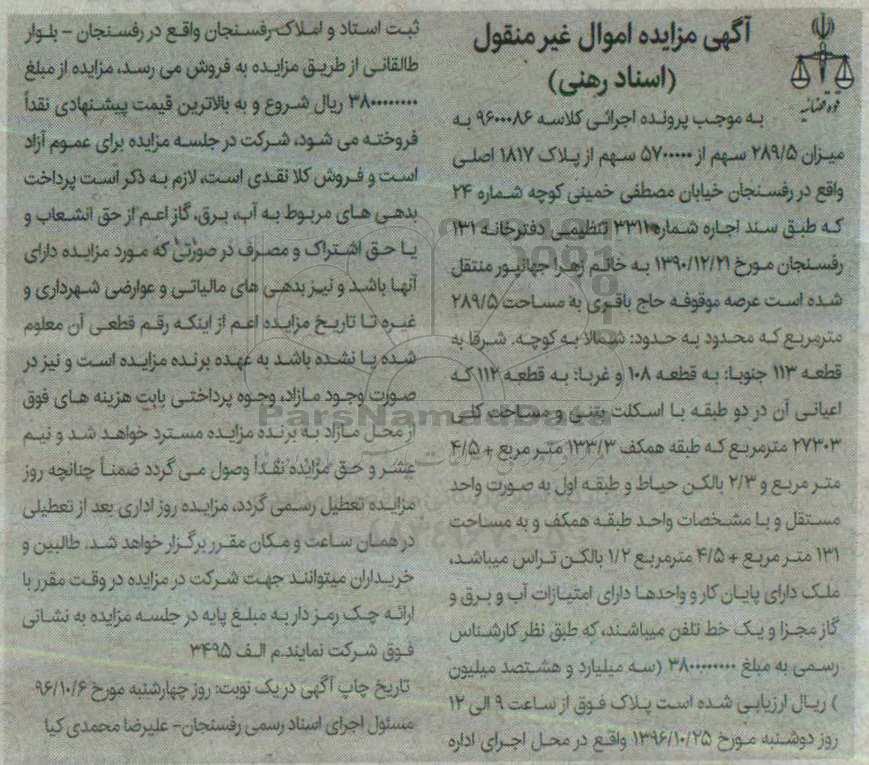 آگهی مزایده اموال غیر منقول
(اسناد رهنی)
قوه قضائیه
به موجب پرونده اجرائی کلاسه ۹۶۰۰۰۸۶ به
میزان ۲۸۹/۵ سهم از ۵۷۰۰۰۰۰ سهم از پلاک ۱۸۱۷ اصلی
واقع در رفسنجان خیابان مصطفی خمینی کوچه شماره ۲۴
که طبق سند اجاره شماره ۳۳۱۱ تنظیمی دفترخانه ۱۳۱
رفسنجان مورخ ۱۳۹۰/۱۲/۲۱ به خانم زهرا جهانپور منتقل
شده است عرصه موقوفه حاج باقری به مساحت ۲۸۹/۵
مترمربع که محدود به حدود: شمالا به کوچه. شرقا به
قطعه ۱۱۳ جنوبا: به قطعه ۱۰۸ و غربا: به قطعه ۱۱۲ که
اعیانی آن در دو طبقه با اسکلت بتنی و مساحت کلی
۲۷۳۰۳ مترمربع که طبقه همکف ۱۳۳/۳ متر مربع + ۴/۵
متر مربع و ۲/۳ بالکن حیاط و طبقه اول به صورت واحد
مستقل و با مشخصات واحد طبقه همکف و به مساحت
۱۳۱ متر مربع + ۴/۵ مترمربع ۱/۲ بالکن تراس میباشد،
ملک دارای پایان کار و واحدها دارای امتیازات آب و برق و
گاز مجزا و یک خط تلفن میباشند، که طبق نظر کارشناس
رسمی به مبلغ ۳۸۰۰۰۰۰۰۰۰ (سه میلیارد و هشتصد میلیون
) ریال ارزیابی شده است پلاک فوق از ساعت ۹ الی ۱۲
روز دوشنبه مورخ ۱۳۹۶/۱۰/۲۵ واقع در محل اجرای اداره
ثبت اسناد و املاک رفسنجان واقع در رفسنجان - بلوار
طالقانی از طریق مزایده به فروش می رسد، مزایده از مبلغ
۳۸۰۰۰۰۰۰۰۰ ریال شروع و به بالاترین قیمت پیشنهادی نقداً
فروخته می شود، شرکت در جلسه مزایده برای عموم آزاد
است و فروش کلا نقدی است، لازم به ذکر است پرداخت
بدهی های مربوط به آب، برق، گاز اعم از حق انشعاب و
یا حق اشتراک و مصرف در صورتی که مورد مزایده دارای
آنها باشد و نیز بدهی های مالیاتی و عوارضی شهرداری و
غیره تا تاریخ مزایده اعم از اینکه رقم قطعی آن معلوم
شده یا نشده باشد به عهده برنده مزایده است و نیز در
صورت وجود مازاد، وجوه پرداختی بابت هزینه های فوق
از محل مازاد به برنده مزایده مسترد خواهد شد و نیم
عشر و حق مزایده نقداً وصول می گردد ضمناً چنانچه روز
مزایده تعطیل رسمی گردد، مزایده روز اداری بعد از تعطیلی
در همان ساعت و مکان مقرر برگزار خواهد شد. طالبین و
خریداران میتوانند جهت شرکت در مزایده در وقت مقرر با
ارائه چک رمز دار به مبلغ پایه در جلسه مزایده به نشانی
فوق شرکت نمایند.م الف ۳۴۹۵
تاریخ چاپ آگهی در یک نوبت: روز چهارشنبه مورخ ۹۶/۱۰/۶
مسئول اجرای اسناد رسمی رفسنجان- علیرضا محمدی کیا
ParsNamadData